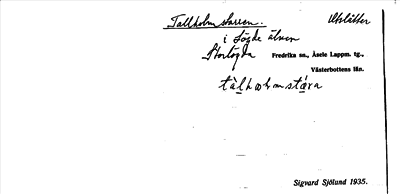 Tallholmstarren. Utslåtter
i Lögde älven
Stortögda Fredrika sn., Åsele Lappm. tg.,
Västerbottens län.
Sigvard Sjölund 1935.